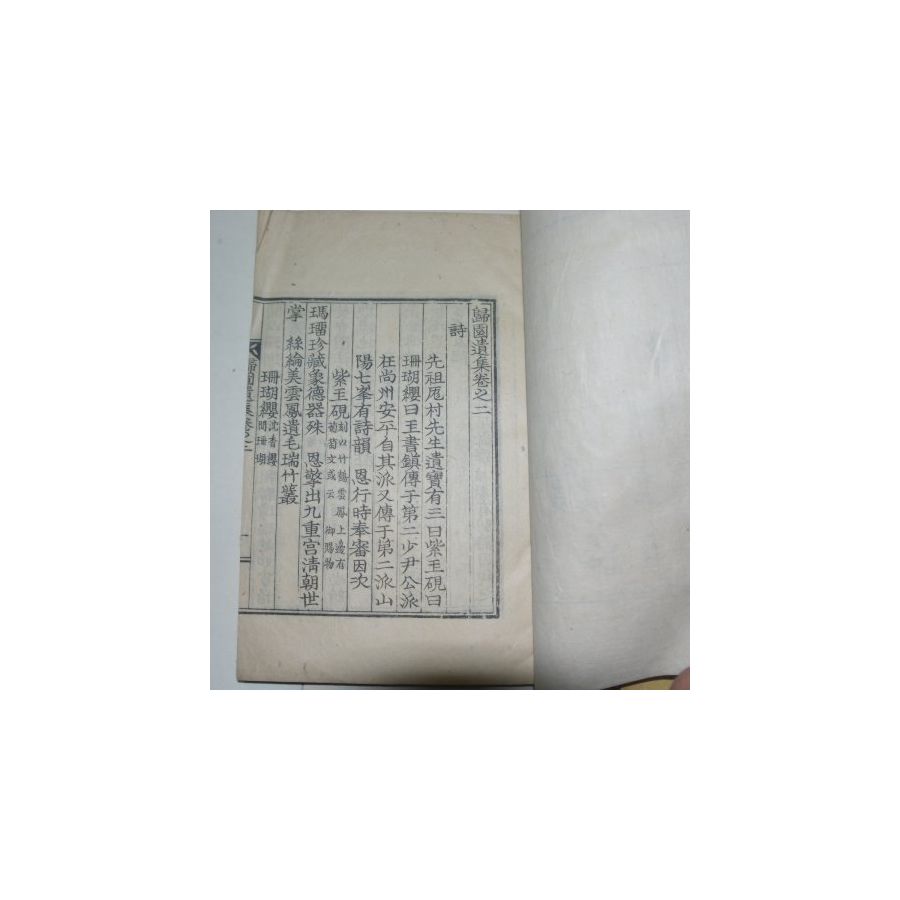 歸園遺集卷之二
詩
先祖厖村先生遺寶有三曰紫玉硯曰
珊瑚纓曰玉書鎮傳于第二少尹公派
在尚州安平自其派又傳于第二派山
陽七峯有詩韻 恩行時奉審因次
紫玉硯 刻以竹鶴雲鳳上邊有
葡萄文或云 御賜物
瑪瑠珍藏象德器殊 恩擎出九重宮清朝世
掌 絲綸美雲鳳遺毛瑞竹叢
珊瑚纓 沈香纓
間珊瑚
歸園遺集卷之二